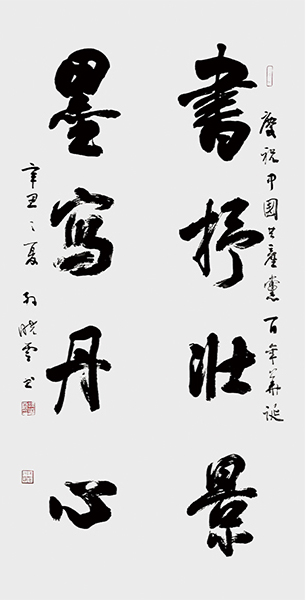 慶祝中国共產黨百年華誕
書抒壯景
墨寫丹心
辛丑之夏孙晓雲书